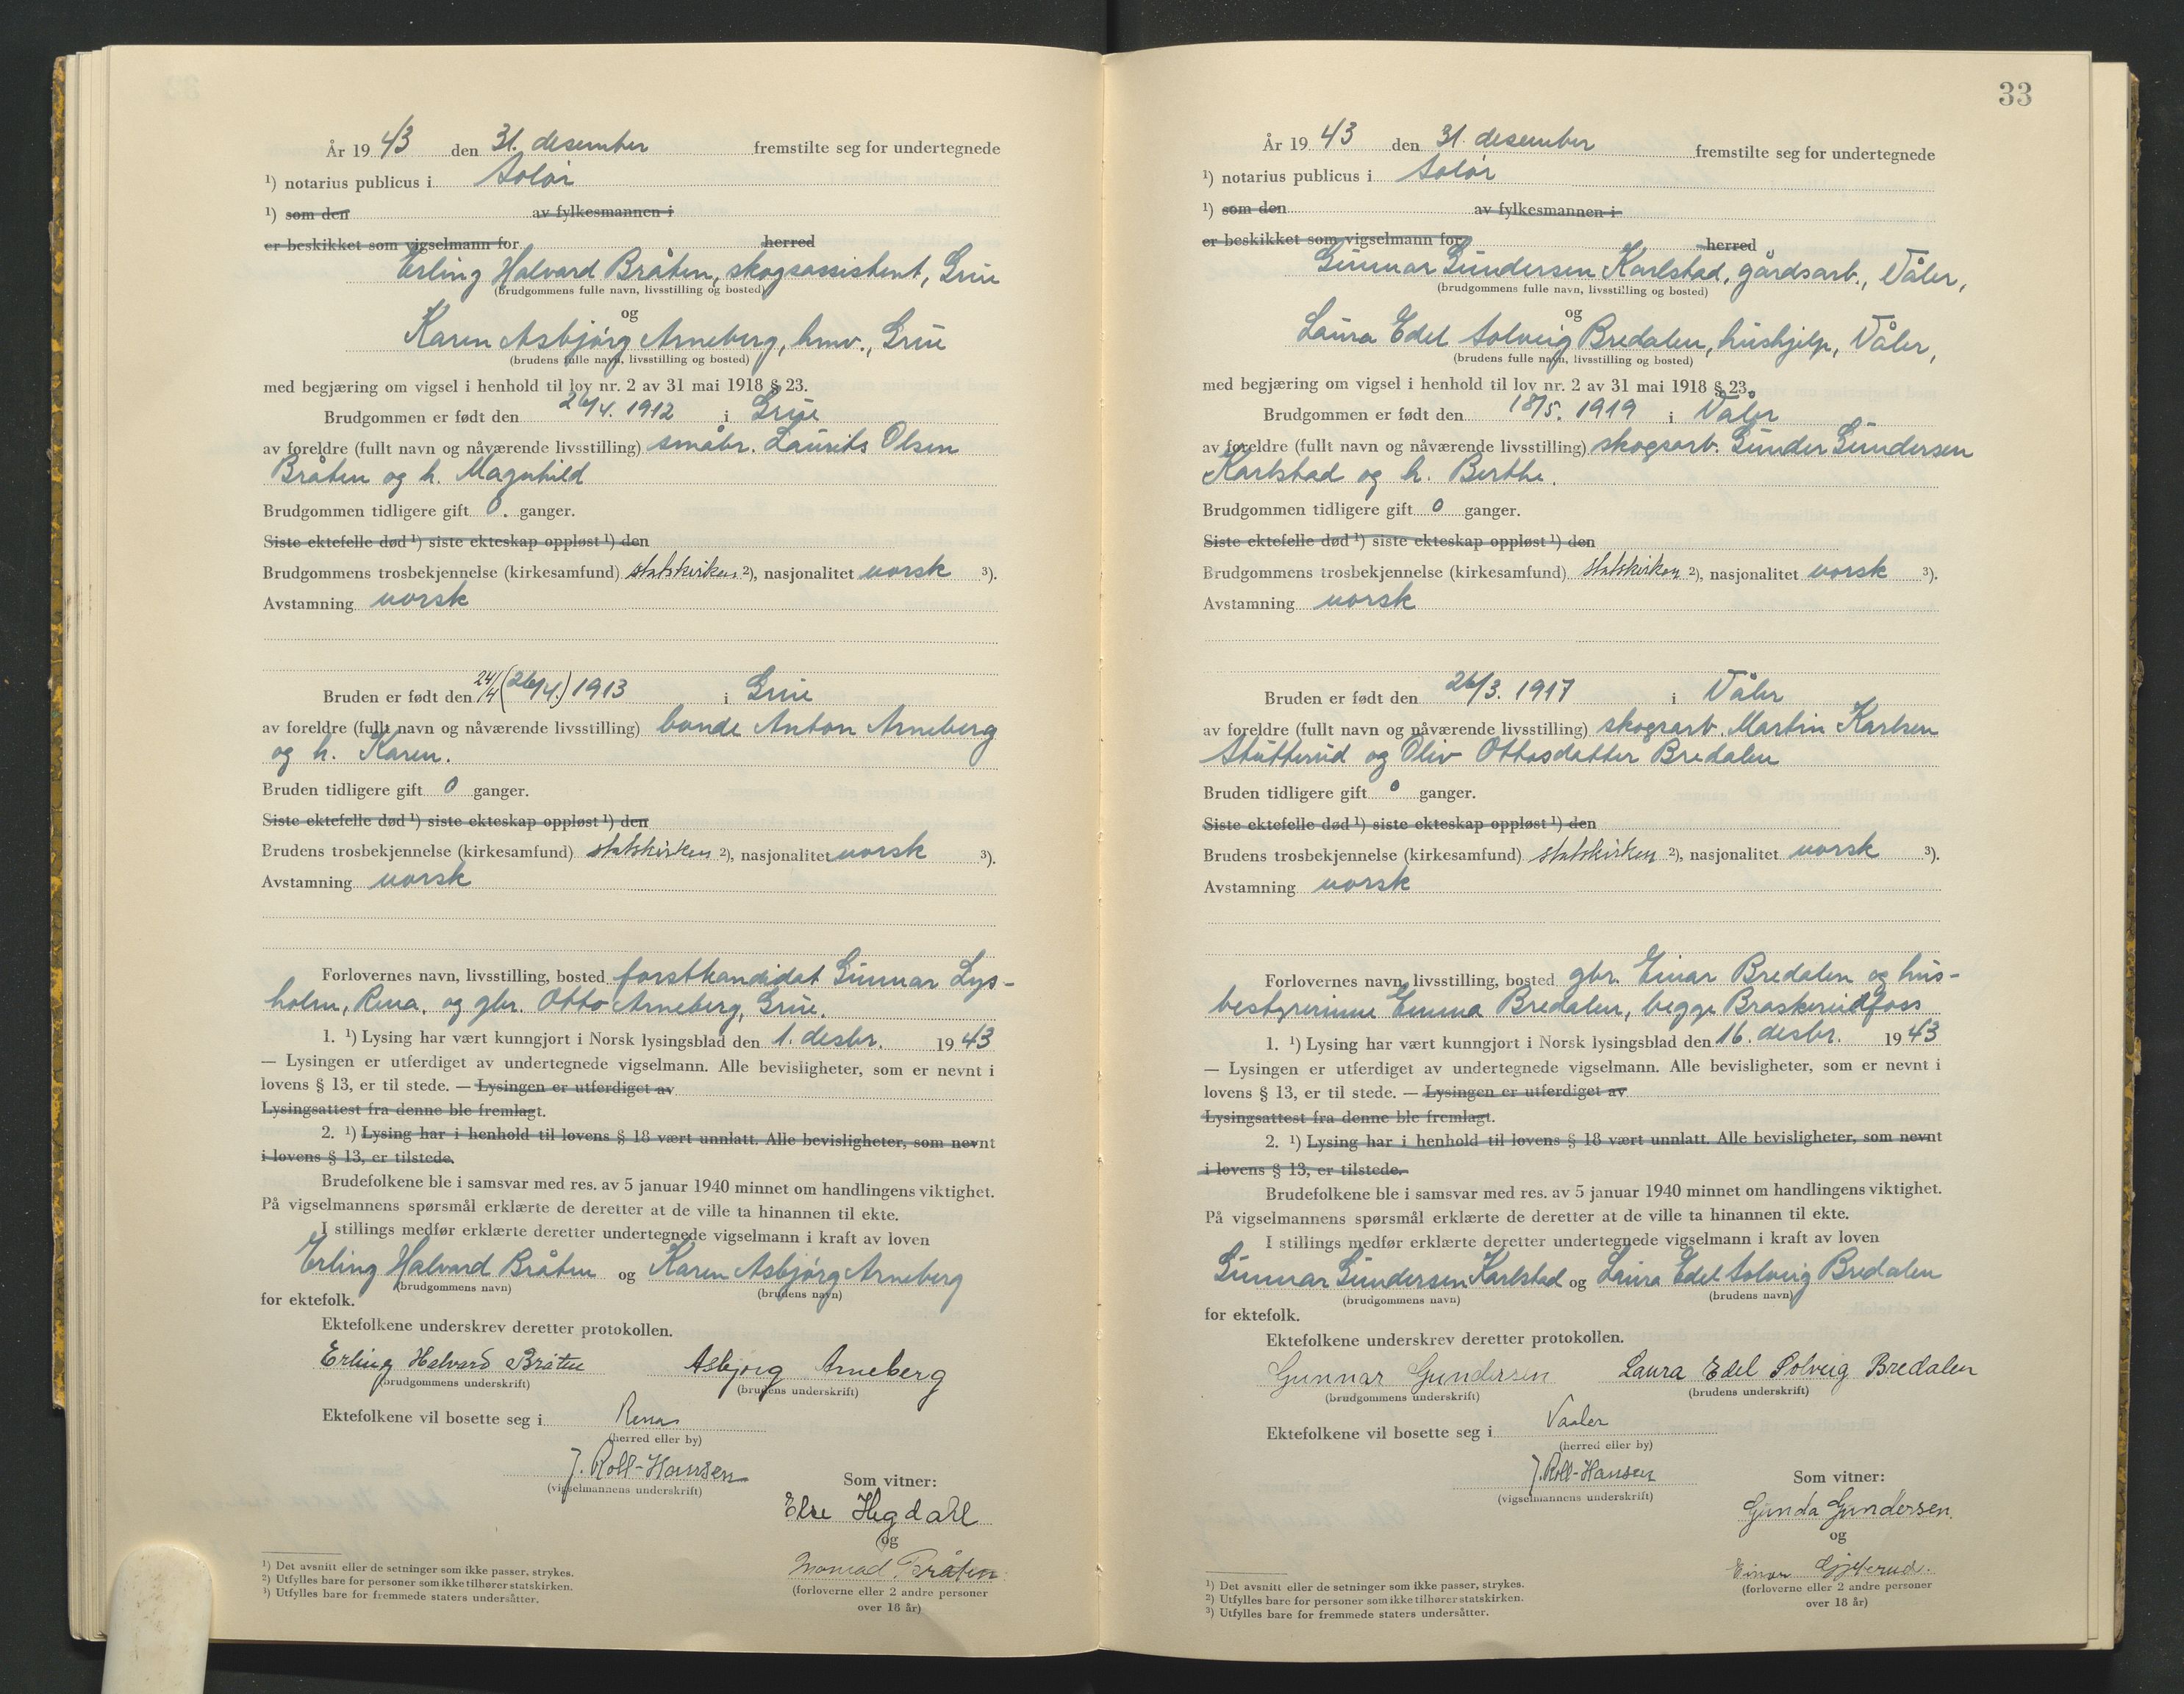 År 1943 den 31. desember fremstilte seg for undertegnede
¹) notarius publicus i Solør
¹) som den av fylkesmannen i
er beskikket som vigselmann for herred
Erling Halvard Bråten, skogsassistent, Grue
(brudgommens fulle navn, livsstilling og bosted)
og
Karen Asbjørg Arneberg, hmv., Grue
(brudens fulle navn, livsstilling og bosted)
med begjæring om vigsel i henhold til lov nr. 2 av 31 mai 1918 § 23.
Brudgommen er født den 26/4. 1912 i Grue
av foreldre (fullt navn og nåværende livsstilling) småbr. Laurits Olsen
Bråten og h. Magnhild
Brudgommen tidligere gift 0. ganger.
Siste ektefelle død ¹) siste ekteskap oppløst ¹) den
Brudgommens trosbekjennelse (kirkesamfund) statskirken ²), nasjonalitet norsk ³).
Avstamning norsk
Bruden er født den 24/4 (26/4.) 1913 i Grue
av foreldre (fullt navn og nåværende livsstilling) bonde Anton Arneberg
og h. Karen.
Bruden tidligere gift 0 ganger.
Siste ektefelle død ¹) siste ekteskap oppløst ¹) den
Brudens trosbekjennelse (kirkesamfund) statskirken ²), nasjonalitet norsk ³).
Avstamning norsk
Forlovernes navn, livsstilling, bosted forstkandidat Gunnar Lys-
holm, Rena, og gbr. Otto Arneberg, Grue.
1. ¹) Lysing har vært kunngjort i Norsk lysingsblad den 1. desbr. 1943
— Lysingen er utferdiget av undertegnede vigselmann. Alle bevisligheter, som er nevnt i
lovens § 13, er til stede. — Lysingen er utferdiget av
Lysingsattest fra denne ble fremlagt.
2. ¹) Lysing har i henhold til lovens § 18 vært unnlatt. Alle bevisligheter, som nevnt
i lovens § 13, er tilstede.
Brudefolkene ble i samsvar med res. av 5 januar 1940 minnet om handlingens viktighet.
På vigselmannens spørsmål erklærte de deretter at de ville ta hinannen til ekte.
I stillings medfør erklærte deretter undertegnede vigselmann i kraft av loven
Erling Halvard Bråten og Karen Asbjørg Arneberg
(brudgommens navn) (brudens navn)
for ektefolk.
Ektefolkene underskrev deretter protokollen.
Erling Halvard Bråten Asbjørg Arneberg
(brudgommens underskrift) (brudens underskrift)
Ektefolkene vil bosette seg i Rena
(herred eller by)
J. Roll-Hansen
(vigselmannens underskrift)
Som vitner:
Else Hegdahl
og
Bråten
(forloverne eller 2 andre personer
over 18 år)
¹) Det avsnitt eller de setninger som ikke passer, strykes.
²) Utfylles bare for personer som ikke tilhører statskirken.
³) Utfylles bare for fremmede staters undersåtter.
33
År 1943 den 31. desember fremstilte seg for undertegnede
¹) notarius publicus i Solør
¹) som den av fylkesmannen i
er beskikket som vigselmann for herred
Gunnar Gundersen Karlstad, gårdsarb., Våler,
(brudgommens fulle navn, livsstilling og bosted)
og
Laura Edel Solveig Bredalen, hushjelp, Våler,
(brudens fulle navn, livsstilling og bosted)
med begjæring om vigsel i henhold til lov nr. 2 av 31 mai 1918 § 23.
Brudgommen er født den 18/5. 1919 i Våler
av foreldre (fullt navn og nåværende livsstilling) skogsarb. Gunder Gundersen
Karlstad og h. Berthe.
Brudgommen tidligere gift 0 ganger.
Siste ektefelle død ¹) siste ekteskap oppløst ¹) den
Brudgommens trosbekjennelse (kirkesamfund) statskirken ²), nasjonalitet norsk ³).
Avstamning norsk
Bruden er født den 26/3. 1917 i Våler
av foreldre (fullt navn og nåværende livsstilling) skogsarb. Martin Karlsen
Stutterud og Oliv Ottosdatter Bredalen
Bruden tidligere gift 0 ganger.
Siste ektefelle død ¹) siste ekteskap oppløst ¹) den
Brudens trosbekjennelse (kirkesamfund) statskirken ²), nasjonalitet norsk ³).
Avstamning norsk
Forlovernes navn, livsstilling, bosted gbr. Einar Bredalen og hus-
bestyrerinne Emma Bredalen, begge Braskereidfoss
1. ¹) Lysing har vært kunngjort i Norsk lysingsblad den 16. desbr. 1943
— Lysingen er utferdiget av undertegnede vigselmann. Alle bevisligheter, som er nevnt i
lovens § 13, er til stede. — Lysingen er utferdiget av
Lysingsattest fra denne ble fremlagt.
2. ¹) Lysing har i henhold til lovens § 18 vært unnlatt. Alle bevisligheter, som nevnt
i lovens § 13, er tilstede.
Brudefolkene ble i samsvar med res. av 5 januar 1940 minnet om handlingens viktighet.
På vigselmannens spørsmål erklærte de deretter at de ville ta hinannen til ekte.
I stillings medfør erklærte deretter undertegnede vigselmann i kraft av loven
Gunnar Gundersen Karlstad og Laura Edel Solveig Bredalen
(brudgommens navn) (brudens navn)
for ektefolk.
Ektefolkene underskrev deretter protokollen.
Gunnar Gundersen Laura Edel Solveig Bredalen
(brudgommens underskrift) (brudens underskrift)
Ektefolkene vil bosette seg i Vaaler
(herred eller by)
J. Roll-Hansen
(vigselmannens underskrift)
Som vitner:
Gunda Gundersen.
og
Einar
(forloverne eller 2 andre personer
over 18 år)
¹) Det avsnitt eller de setninger som ikke passer, strykes.
²) Utfylles bare for personer som ikke tilhører statskirken.
³) Utfylles bare for fremmede staters undersåtter.